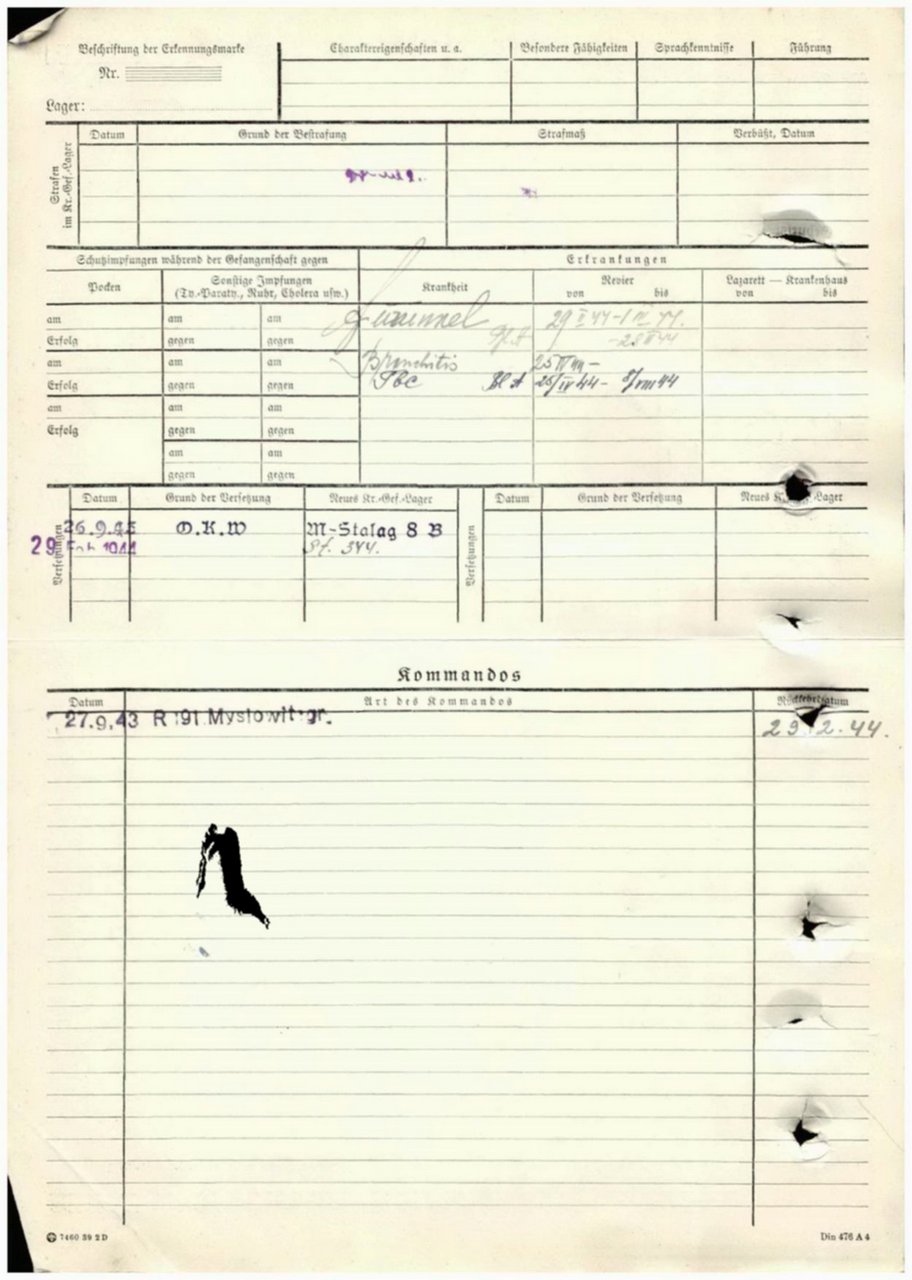 Beschriftung der Erkennungsmarke
Nr.
Lager:
Charaktereigenschaften u. a.
Besondere Fähigkeiten
Sprachkenntnisse
Führung
Strafen im Kr.-Gef.-Lager
Datum
Grund der Bestrafung
Strafmaß
Verbüßt, Datum
Schutzimpfungen während der Gefangenschaft gegen
Erkrankungen
Pocken
Sonstige Impfungen
(Ty.-Paraty., Ruhr, Cholera usw.)
Krankheit
Revier
von bis
Lazarett — Krankenhaus
von bis
am am am
Erfolg gegen gegen
am am am Bronchitis 25
Erfolg gegen gegen Tbc 25/IV 44 - 8/VIII 44
am am am
Erfolg gegen gegen
am am
gegen gegen
Versetzungen
Datum Grund der Versetzung Neues Kr.-Gef.-Lager
Versetzungen
Datum Grund der Versetzung Neues Lager
26.9.43 O.K.W M-Stalag 8 B
29 Feb. 1944 St. 344.
Kommandos
Datum Art des Kommandos Rückkehrdatum
27.9.43 R 191 Myslowitz-gr. 29.2.44.
7460 39 2D
Din 476 A 4